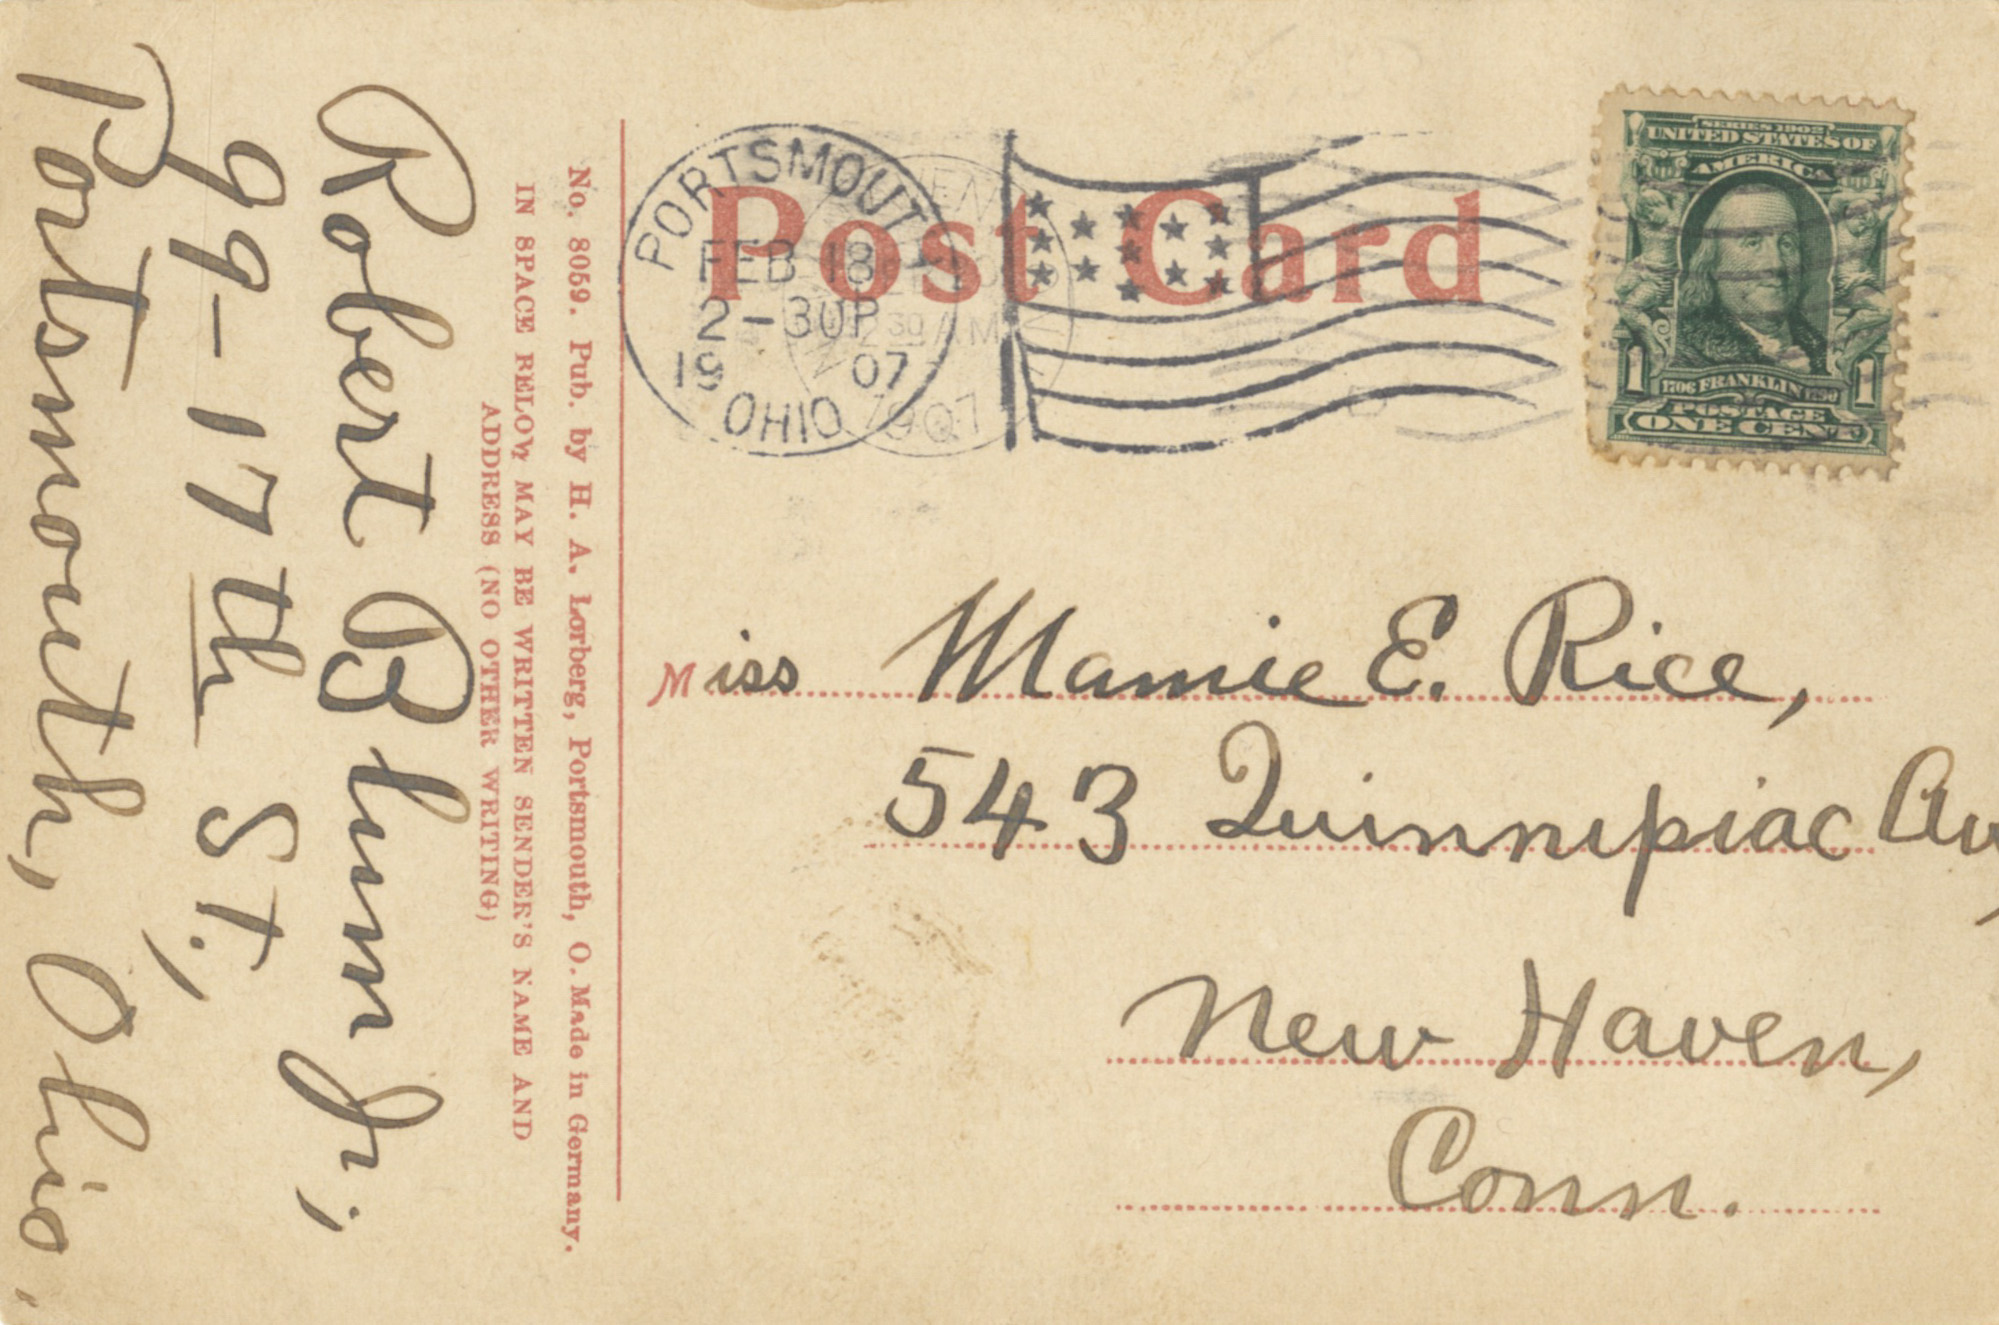 Post Card
PORTSMOUTH
FEB 18
2-30P
19 07
OHIO
30 AM
1907
SERIES 1902
UNITED STATES OF
AMERICA
1 1
1706 FRANKLIN 1790
POSTAGE
ONE CENT
Miss Mamie E. Rice,
543 Quinnipiac Av,
New Haven,
Conn.
No. 8059. Pub. by H. A. Lorberg, Portsmouth, O. Made in Germany.
IN SPACE BELOW MAY BE WRITTEN SENDER'S NAME AND
ADDRESS (NO OTHER WRITING)
Robert Blum Jr,
99-17th St.,
Portsmouth, Ohio,